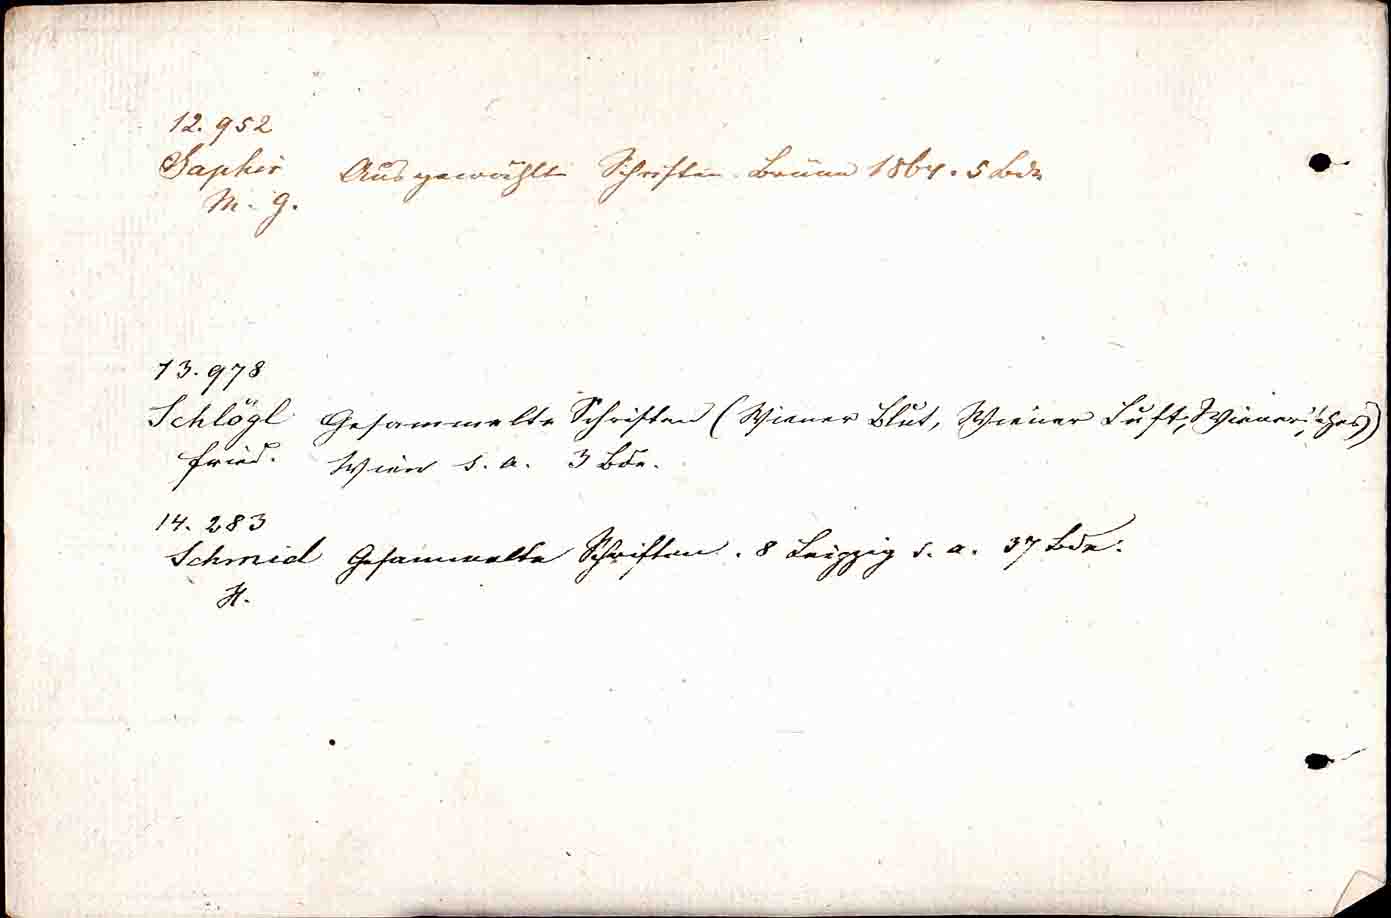 12.952
Saphir Ausgewählte Schriften. Brünn 1864. 5 Bde
M. G.
13.978
Schlögl Gesammelte Schriften (Wiener Blut, Wiener Luft, Wienerisches)
Fried. Wien s. a. 3 Bde.
14.283
Schmid Gesammelte Schriften. 8 Leipzig s. a. 37 Bde.
H.